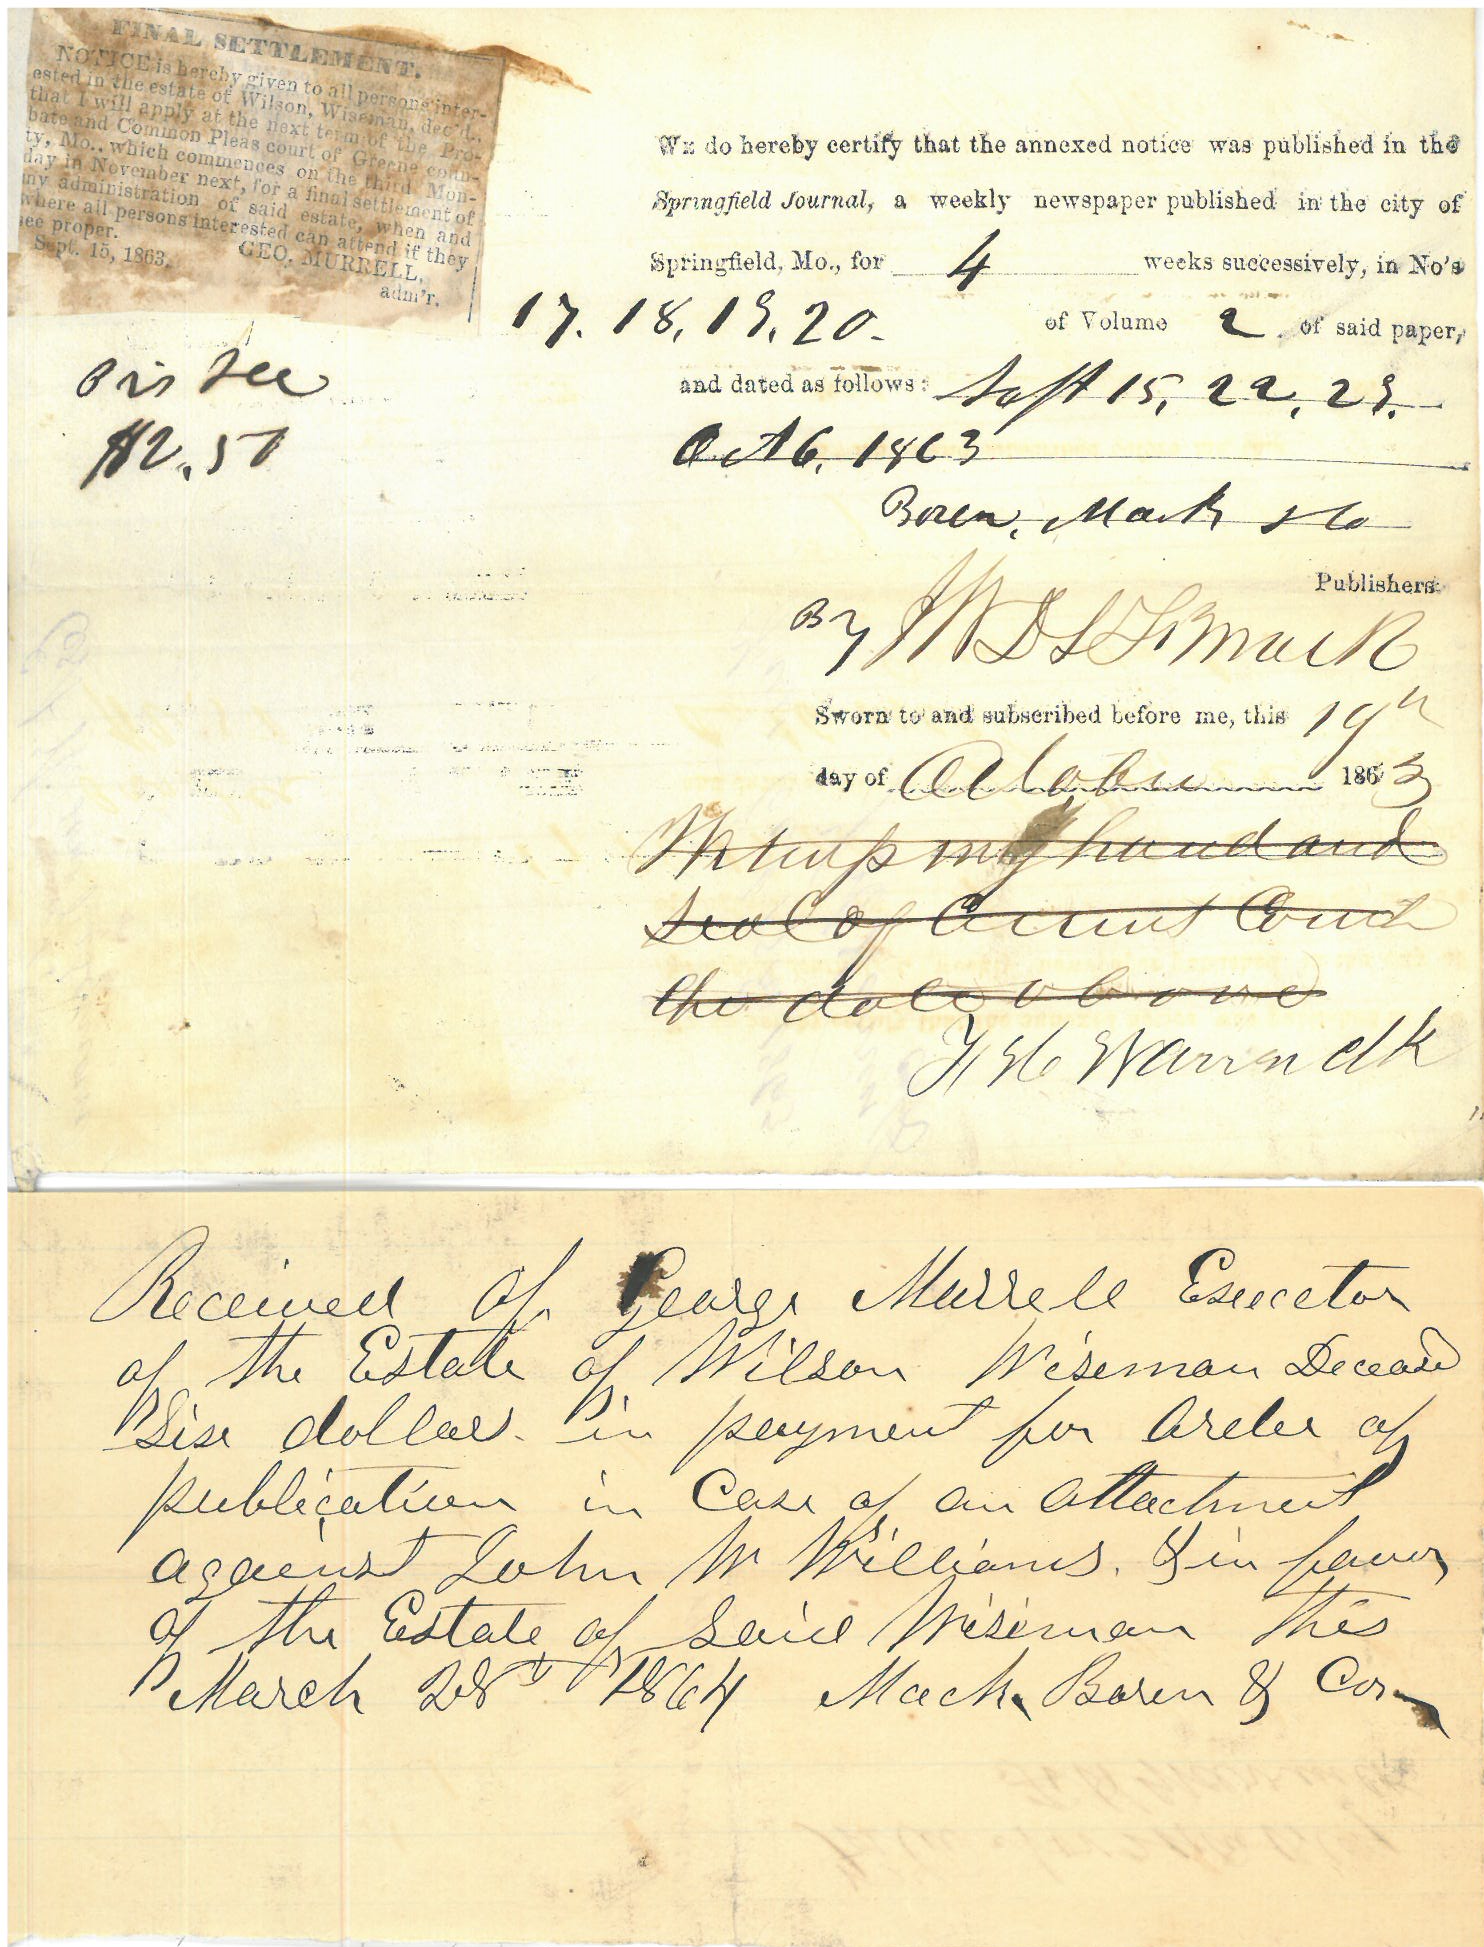 FINAL SETTLEMENT.
NOTICE is hereby given to all persons inter-
ested in the estate of Wilson, Wiseman, dec'd.,
that I will apply at the next term of the Pro-
bate and Common Pleas court of Greene coun-
ty, Mo., which commences on the third Mon-
day in November next, for a final settlement of
my administration of said estate, when and
where all persons interested can attend if they
see proper.
GEO. MURRELL,
Sept. 15, 1863.
adm'r.
We do hereby certify that the annexed notice was published in the
Springfield Journal, a weekly newspaper published in the city of
Springfield, Mo., for 4 weeks successively, in No's
17. 18, 19, 20. of Volume 2 of said paper,
and dated as follows: Sept 15, 22, 29,
Oct 6, 1863
Boren, Mack & Co
Publishers
Prs fee
$2.50
By
Sworn to and subscribed before me, this 19th
day of October 1863
Witness my hand and
Seal of Circuit Court
the date above
Warren Clk
Received of George Murrell Executor
of the Estate of Wilson Wiseman Deceasd
Six dollars in payment for Order of
publication in Case of an attachment
against John W Williams. & in favor
of the Estate of Said Wiseman this
March 28th 1864 Mack, Boren & Co